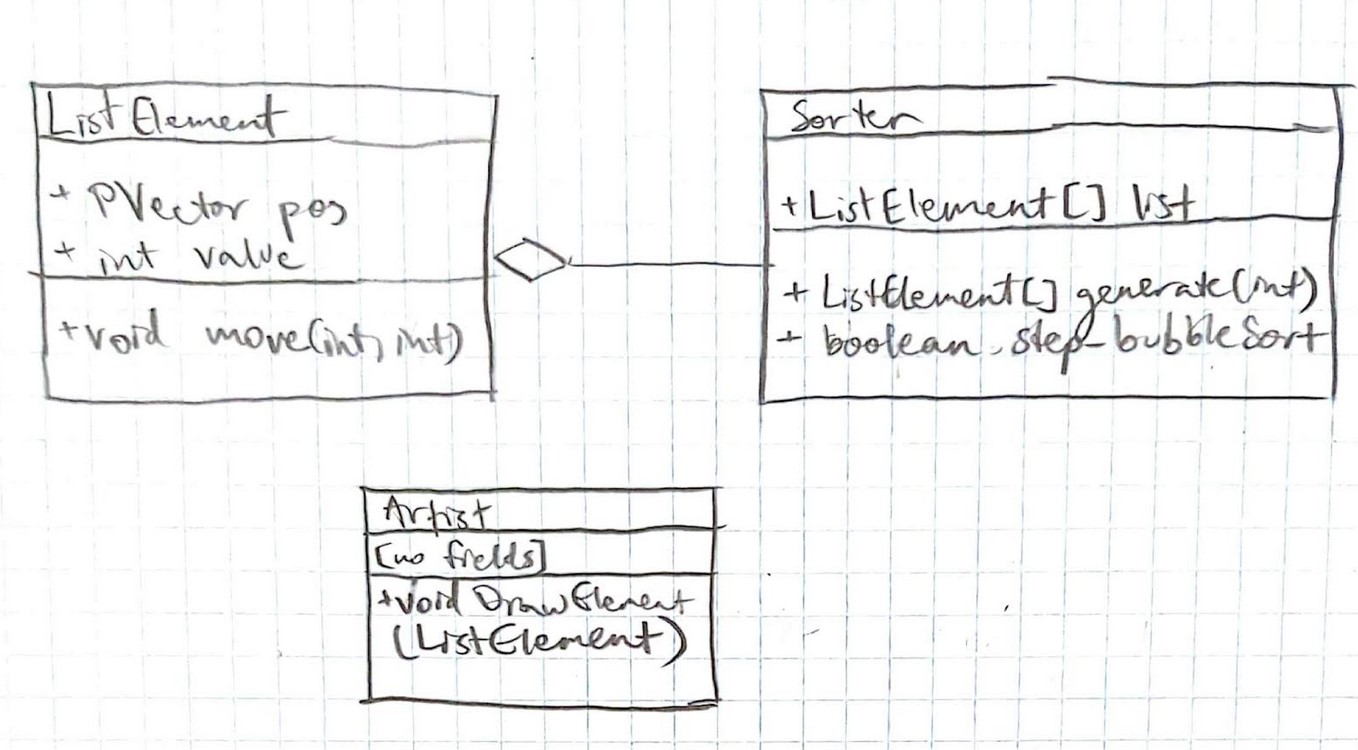 ListElement
+ PVector pos
+ int value
+void move(int, int)
Sorter
+ListElement[] list
+ ListElement[] generate(int)
+ boolean step_bubbleSort
Artist
[no fields]
+void DrawElement
(ListElement)